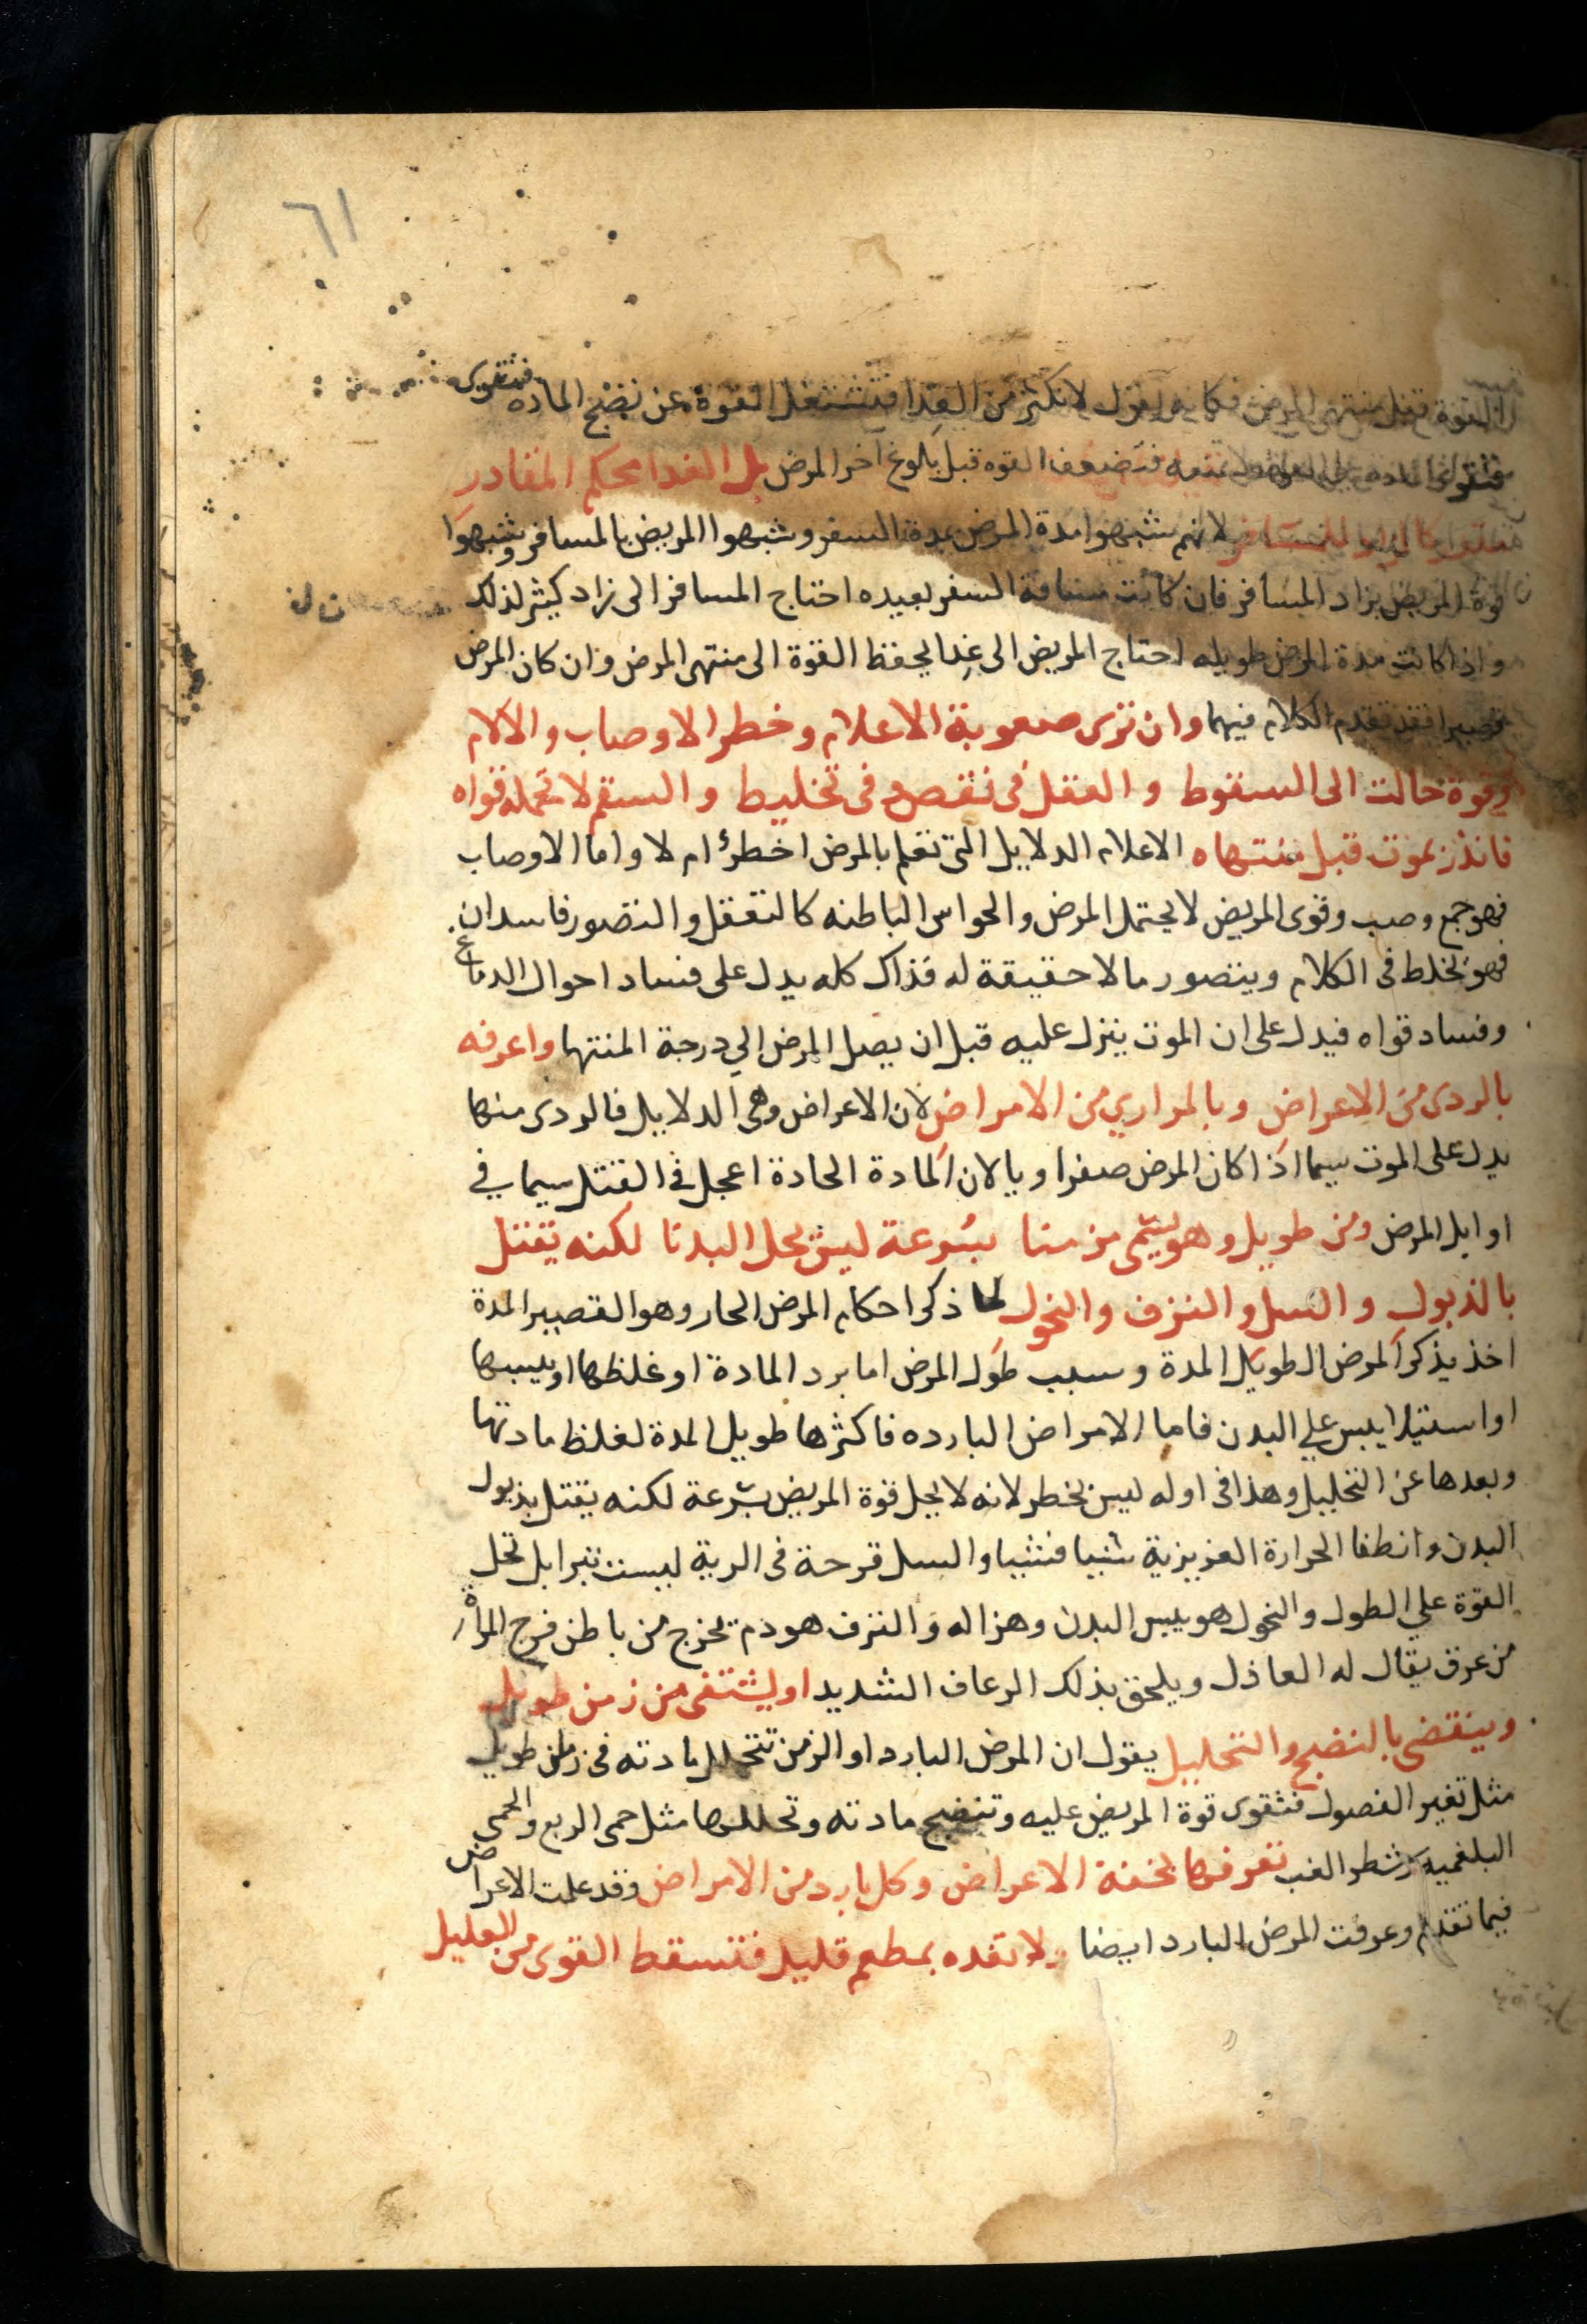 ٦١
القوة قبل منتهى المرض فكانه يقول لا تكثر من الغدا فتشتغل القوة عن نضج الماده فتقوى
فتضعف القوه قبل بلوغ اخر المرض بل الغدا محكم المقادر
لانهم شبهوا مدة المرض بمدة السفر وشبهوا المريض بالمسافر وشبهوا
قوة المريض بزاد المسافر فان كانت مسافة السفر بعيده احتاج المسافر الى زاد كيثر لذلك
واذا كانت مدة المرض طويله احتاج المريض الى غدا يحفظ القوة الى منتهى المرض وان كان المرض
قصيرا فقد تقدم الكلام فيهما وان ترى صعوبة الاعلام وخطر الاوصاب والالام
وقوة حالت الى السقوط والعقل فى نقص وفى تخليط والسقم لا تحمله قواه
فانذر بموت قبل منتهاه الاعلام الدلايل التى تعلم بالمرض اخطرٔ ام لا واما الاوصاب
فهو جمع وصب وقوى المريض لا يحتمل المرض والحواس الباطنه كالتعقل والتصور فاسدان
فهو يخلط فى الكلام ويتصور مالا حقيقة له فذاك كله يدل على فساد احوال الدماغ
وفساد قواه فيدل على ان الموت ينزل عليه قبل ان يصل المرض الي درجة المنتها واعرفه
بالردى من الاعراض وبالمراري من الامراض لان الاعراض وهى الدلايل فالردى منها
يدل على الموت سيما اذا كان المرض صفراويا لان المادة الحادة اعجل فى القتل سيما في
اوايل المرض ومن طويل وهو يسمى مزمنا بسُرعة ليس يحل البدنا لكنه يقتل
بالذبول والسل والنزف والنحول لما ذكر احكام المرض الحار وهو القصير المدة
اخذ يذكر المرض الطويل المدة وسبب طول المرض اما برد المادة او غلظها او يبسها
او استيلا يبس علي البدن فاما الامراض البارده فاكثرها طويل المدة لغلظ مادتها
وبعدها عن التحليل وهذا فى اوله ليس بخطر لانه لا يحل قوة المريض بسرعة لكنه يقتل بذبول
البدن وانطفا الحرارة الغريزية شيا فشيا والسل قرحة فى الرية ليست تبرا بل تحل
القوة علي الطول والنحول هو يبس البدن وهزاله والنزف هو دم يخرج من باطن فرج المراة
من عرق يقال له العاذل ويلحق بذلك الرعاف الشديد او يشتفى من زمن طويل
وينقضى بالنضج والتحليل يقول ان المرض البارد او المزمن تتحلل مادته فى زمن طويل
مثل تغير الفصول فتقوى قوة المريض عليه وتنضج مادته وتحللها مثل حمى الربع والحمى
البلغميه وشطر الغب تعرفها بخفة الاعراض وكل بارد من الامراض وقد علمت الاعراض
فيما تقدم وعرفت المرض البارد ايضا ولا تغده بمطعم قليل فتسقط القوى من العليل